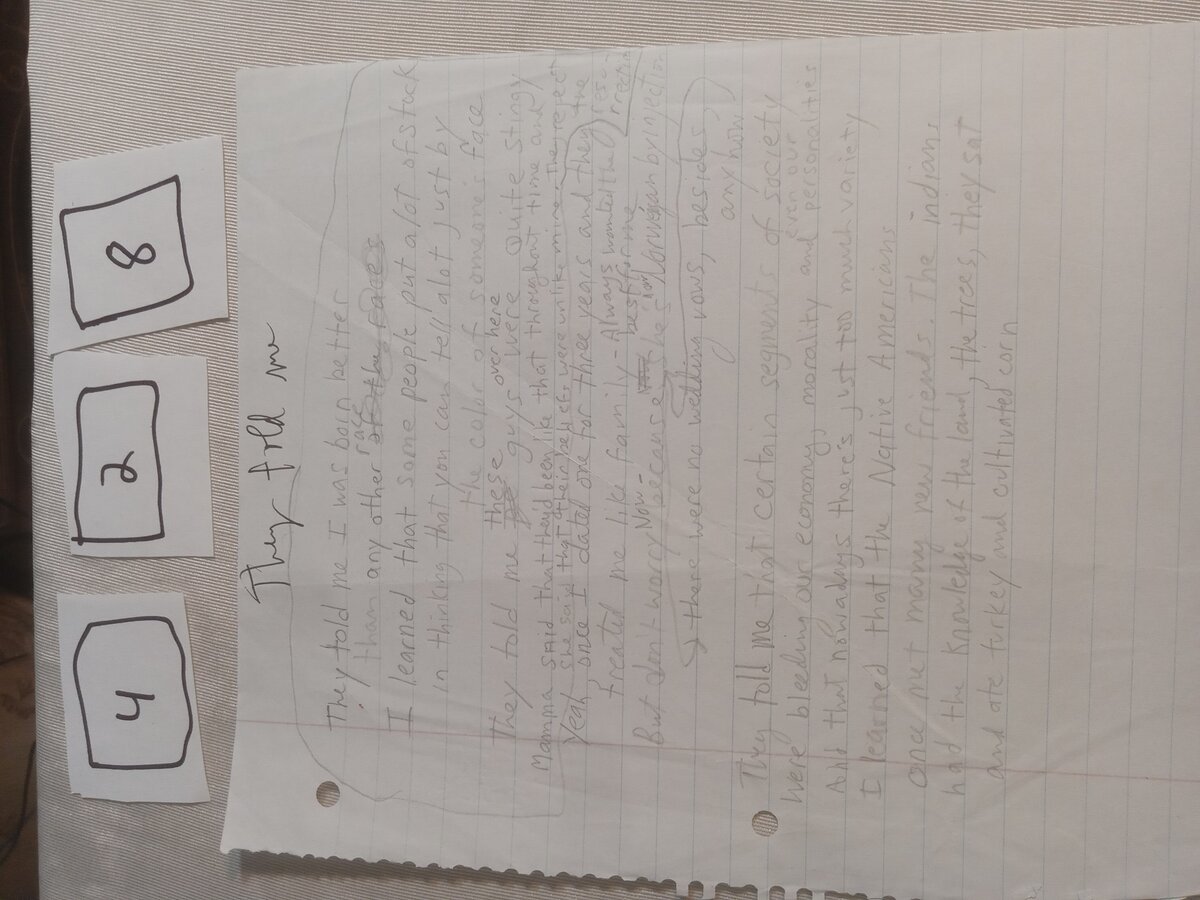 4 2 8
They told me
They told me I was born better
than any other race
I learned that some people put a lot of stock
in thinking that you can tell alot just by
the color of someone's face
They told me these guys over here were quite stingy
Mamma said that they'd been like that throughout time and
Yeah she said that their beliefs were unlike mine, they reject the
once I dated one for three years and they
treated me like family - Always wanted the best for me
But don't worry Now - because he's now Norwegian by injection
there were no wedding vows, besides,
anyhow
They told me that certain segments of society
were bleeding our economy, morality and even our personalities
And that nowadays there's just too much variety
I learned that the Native Americans
once met many new friends. The indians
had the knowledge of the land, the trees, they sat
and ate turkey and cultivated corn